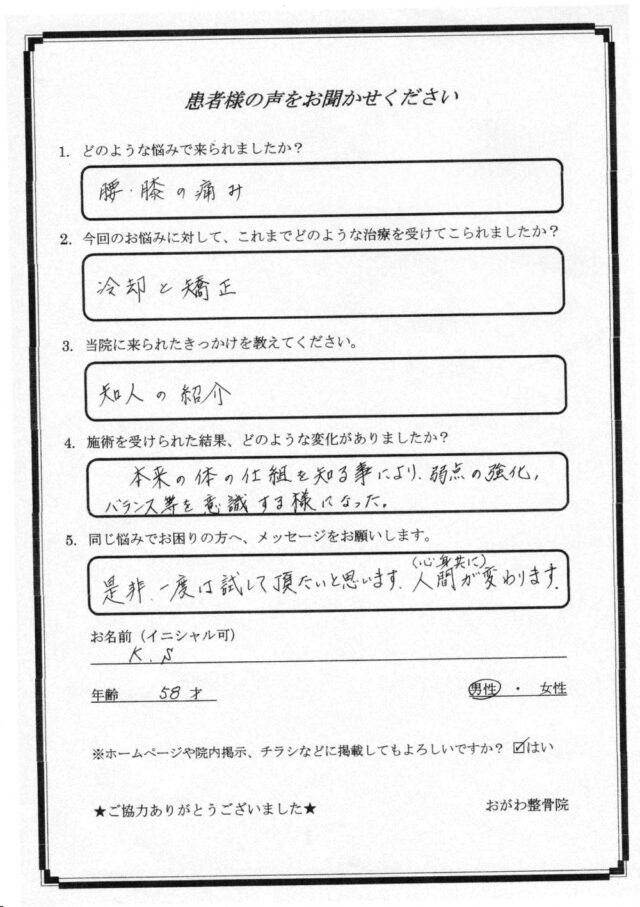 患者様の声をお聞かせください
1. どのような悩みで来られましたか？
腰・膝の痛み
2. 今回のお悩みに対して、これまでどのような治療を受けてこられましたか？
冷却と矯正
3. 当院に来られたきっかけを教えてください。
知人の紹介
4. 施術を受けられた結果、どのような変化がありましたか？
本来の体の仕組を知る事により、弱点の強化、
バランス等を意識する様になった。
5. 同じ悩みでお困りの方へ、メッセージをお願いします。
（心身共に）
是非、一度は試して頂たいと思います、人間が変わります。
お名前（イニシャル可）
K.S
年齢 58才 男性 ・ 女性
※ホームページや院内掲示、チラシなどに掲載してもよろしいですか？ ☑はい
★ご協力ありがとうございました★ おがわ整骨院